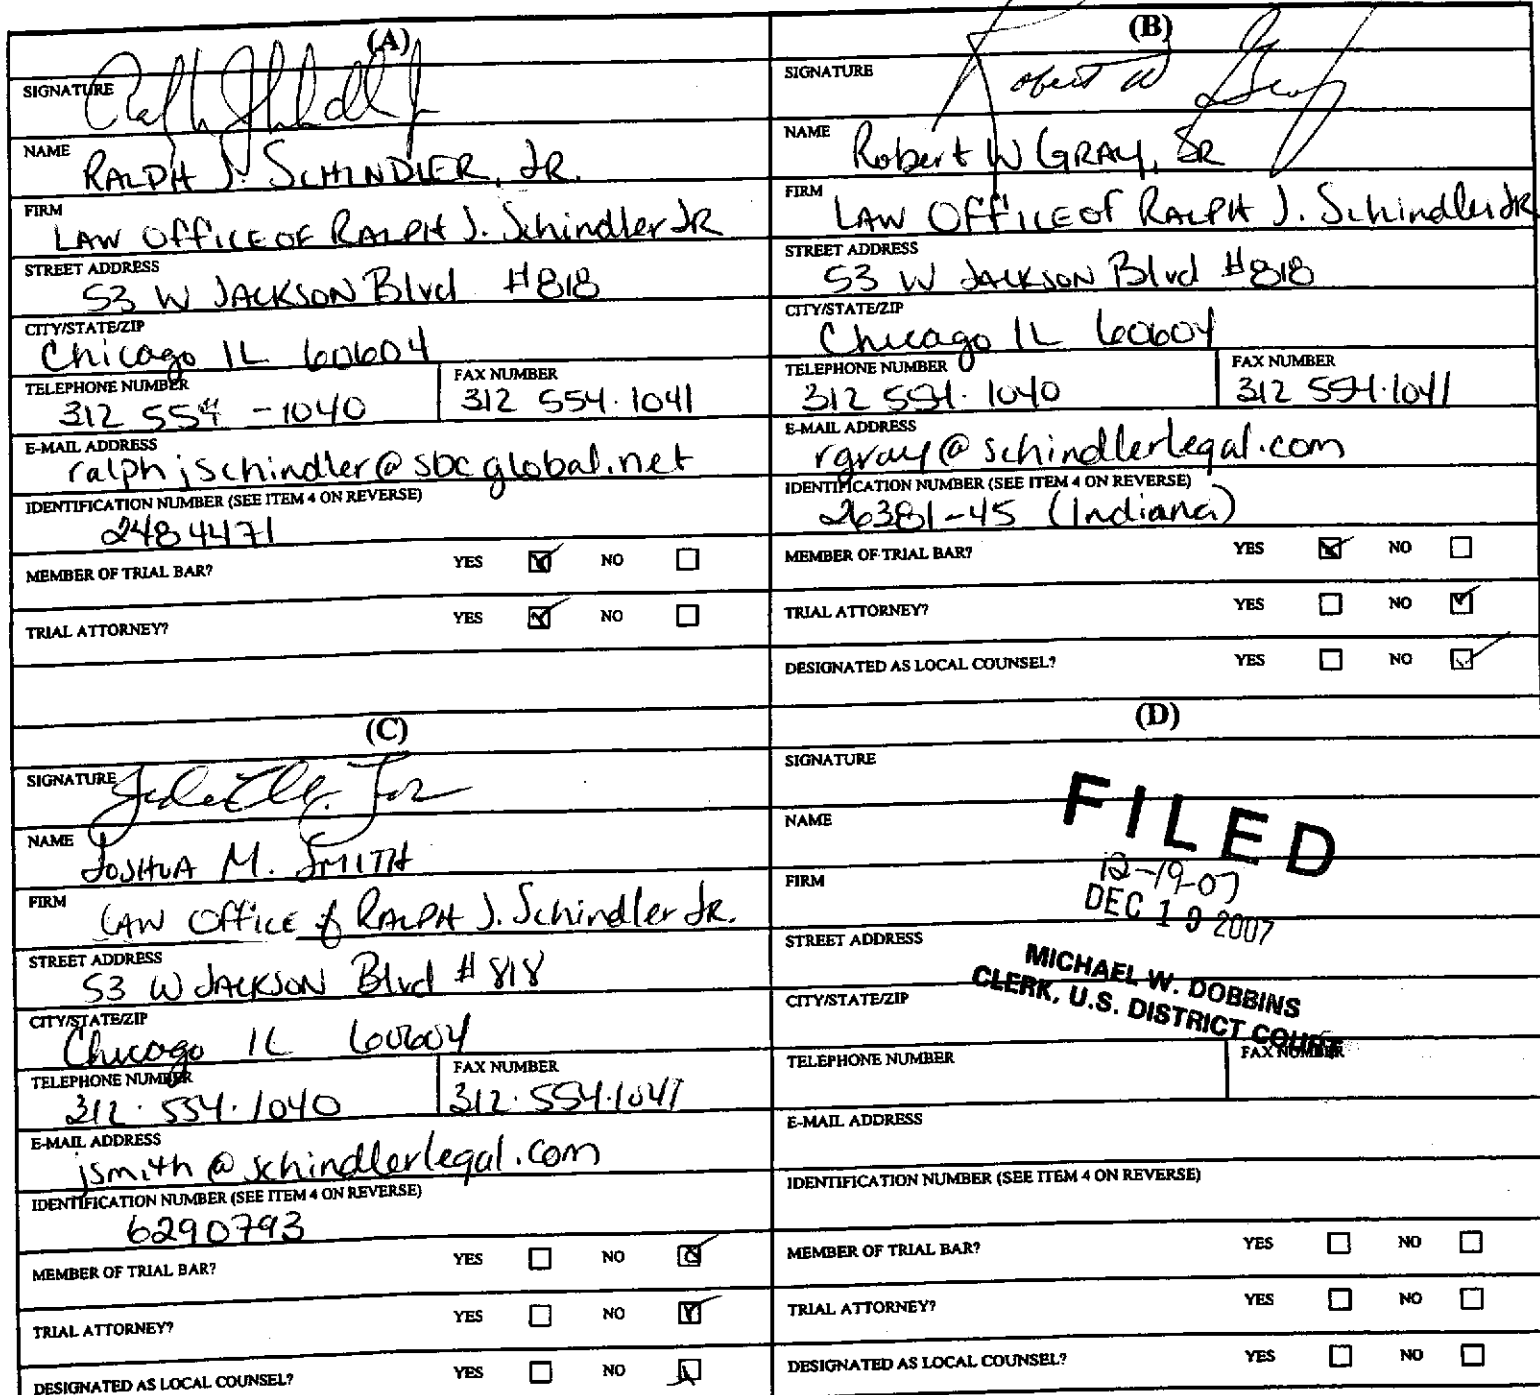 (A)
SIGNATURE Ralph J Schindler Jr
NAME RALPH J. SCHINDLER, JR.
FIRM LAW OFFICE OF RALPH J. Schindler JR
STREET ADDRESS
53 W JACKSON Blvd #818
CITY/STATE/ZIP
Chicago IL 60604
TELEPHONE NUMBER
312 554-1040
FAX NUMBER
312 554.1041
E-MAIL ADDRESS
ralphjschindler@sbcglobal.net
IDENTIFICATION NUMBER (SEE ITEM 4 ON REVERSE)
2484471
MEMBER OF TRIAL BAR? YES NO
TRIAL ATTORNEY? YES NO
(B)
SIGNATURE Robert W Gray
NAME Robert W GRAY, SR
FIRM LAW OFFICE OF RALPH J. Schindler JR
STREET ADDRESS
53 W JACKSON Blvd #818
CITY/STATE/ZIP
Chicago IL 60604
TELEPHONE NUMBER
312 554.1040
FAX NUMBER
312 554.1041
E-MAIL ADDRESS
rgray@schindlerlegal.com
IDENTIFICATION NUMBER (SEE ITEM 4 ON REVERSE)
26381-45 (Indiana)
MEMBER OF TRIAL BAR? YES NO
TRIAL ATTORNEY? YES NO
DESIGNATED AS LOCAL COUNSEL? YES NO
(C)
SIGNATURE
NAME JOSHUA M. SMITH
FIRM LAW OFFICE of RALPH J. Schindler JR.
STREET ADDRESS
53 W JACKSON Blvd #818
CITY/STATE/ZIP
Chicago IL 60604
TELEPHONE NUMBER
312.554.1040
FAX NUMBER
312.554.1041
E-MAIL ADDRESS
jsmith@schindlerlegal.com
IDENTIFICATION NUMBER (SEE ITEM 4 ON REVERSE)
6290793
MEMBER OF TRIAL BAR? YES NO
TRIAL ATTORNEY? YES NO
DESIGNATED AS LOCAL COUNSEL? YES NO
(D)
SIGNATURE
NAME
FILED
12-19-07
DEC 19 2007
FIRM
STREET ADDRESS
MICHAEL W. DOBBINS
CLERK, U.S. DISTRICT COURT
CITY/STATE/ZIP
TELEPHONE NUMBER
FAX NUMBER
E-MAIL ADDRESS
IDENTIFICATION NUMBER (SEE ITEM 4 ON REVERSE)
MEMBER OF TRIAL BAR? YES NO
TRIAL ATTORNEY? YES NO
DESIGNATED AS LOCAL COUNSEL? YES NO